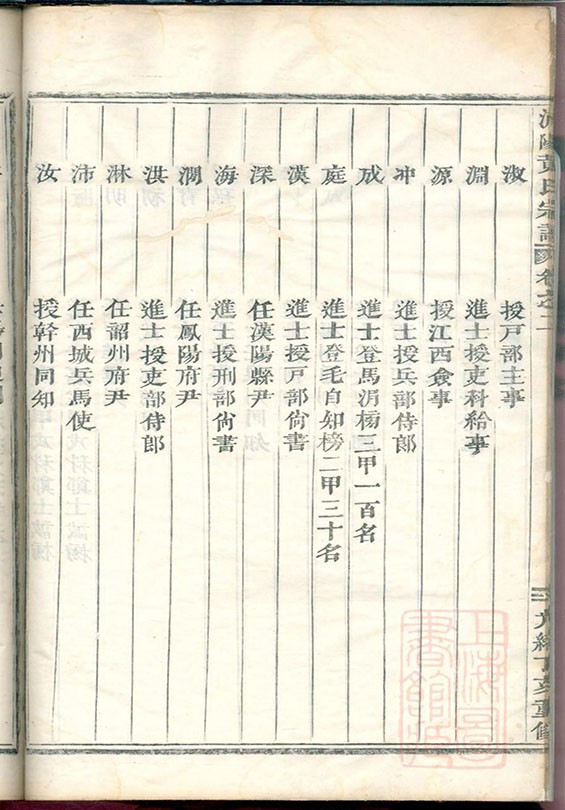 黄氏宗譜 卷之二
光緒丁亥重修
淑 授戸部主事
淵 進士授吏科給事
源 授江西僉事
冲 進士授兵部侍郎
成 進士登馬涓榜三甲一百名
庭 進士登毛自知榜二甲三十名
漢 進士授戸部尙書
深 任漢陽縣尹
海 進士授刑部尙書
澗 任鳳陽府尹
洪 進士授吏部侍郎
淋 任韶州府尹
沛 任西城兵馬使
汝 授幹州同知
上海圖書館藏